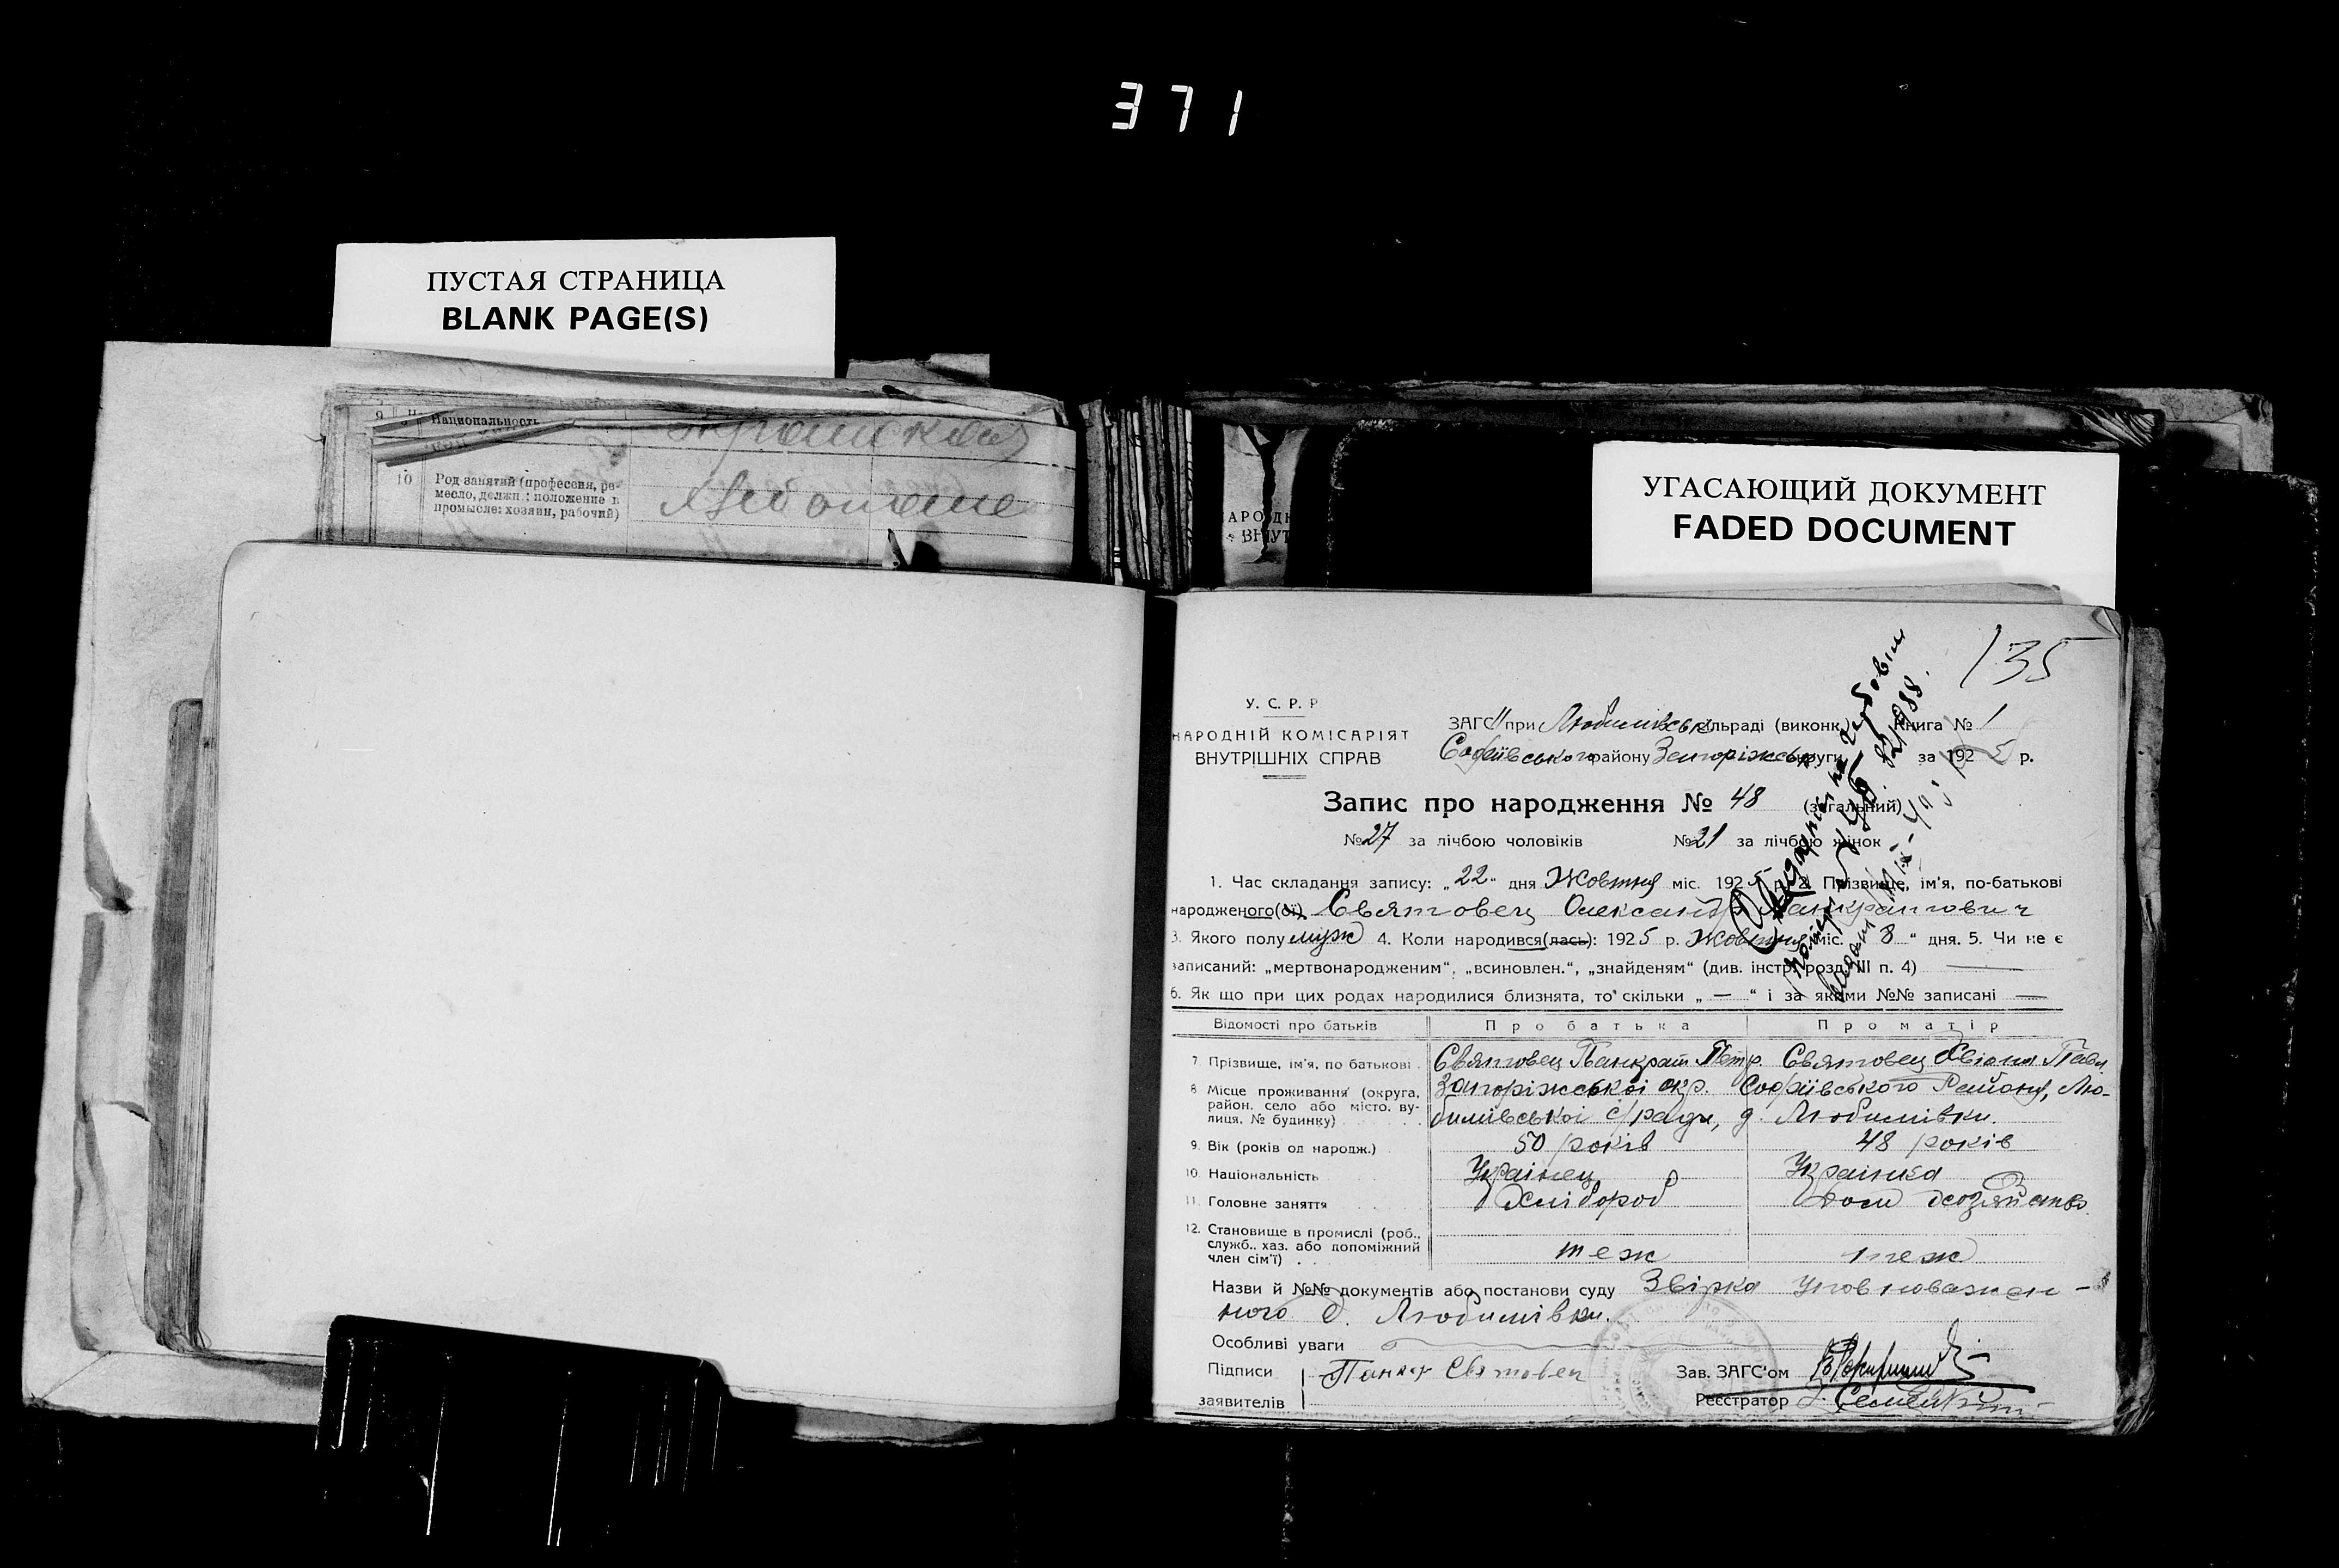 371
ПУСТАЯ СТРАНИЦА
BLANK PAGE(S)
9 Национальность
10 Род занятий (профессия, ре-
месло, должн.: положение в
промысле: хозяин, рабочий)
УГАСАЮЩИЙ ДОКУМЕНТ
FADED DOCUMENT
135
У. С. Р. Р
НАРОДНІЙ КОМІСАРІЯТ
ВНУТРІШНІХ СПРАВ
ЗАГС при Любимівськ сільраді (виконк.) Книга № 1
Софіївського району Запоріжськ округи за 1925 р.
Запис про народження № 48 (загальний)
№ 27 за лічбою чоловіків № 21 за лічбою жінок
1. Час складання запису: „22“ дня Жовтня міс. 1925 р. 2. Прізвище, ім'я, по-батькові
народженого(ої) Святовец Олександр Панкратович
3. Якого полу муж 4. Коли народився(лась): 1925 р. Жовтня міс. 8 “ дня. 5. Чи не є
записаний: „мертвонародженим“, „всиновлен.“, „знайденям“ (див. інстр. розд. III п. 4) —
6. Як що при цих родах народилися близнята, то скільки „ — “ і за якими №№ записані —
Відомості про батьків Про батька Про матір
7. Прізвище, ім'я, по батькові Святовец Панкрат Петр. Святовец Павл
8. Місце проживання (округа, Запоріжської окр. Софіївського Району, Лю-
район, село або місто, ву-
лиця, № будинку) бимівської с/ради, д. Любимівки.
9. Вік (років од народж.) 50 років 48 років
10. Національність Українец Українка
11. Головне заняття Хлібороб Дом хозяйство
12. Становище в промислі (роб.,
служб., хаз. або допоміжний
член сім'ї) теж теж
Назви й №№ документів або постанови суду Звірка Уповноважен-
ного д. Любимівки.
Особливі уваги
Підписи Панкр Святовец Зав. ЗАГС'ом
заявителів Реєстратор